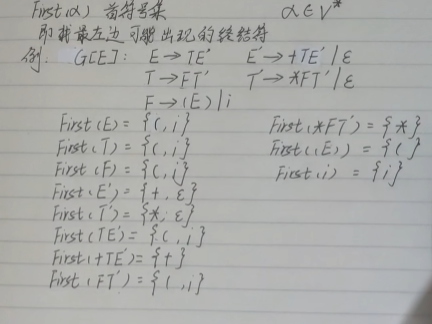 First(α) 首符号集 α∈V*
即 最左边可能出现的终结符
例: G[E]: E→TE' E'→+TE'|ε
T→FT' T'→*FT'|ε
F→(E)|i
First(E)={(,i}
First(T)={(,i}
First(F)={(,i}
First(E')={+,ε}
First(T')={*,ε}
First(TE')={(,i}
First(+TE')={+}
First(FT')={(,i}
First(*FT')={*}
First((E))={(}
First(i)={i}